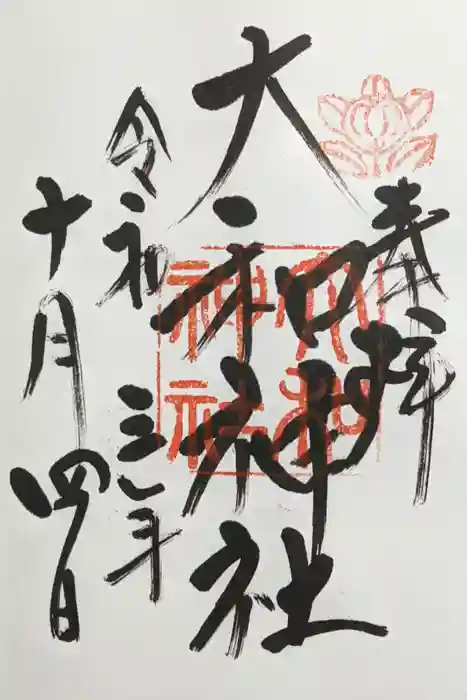 奉拝
大和神社
大和
神社
令和三年
十月四日